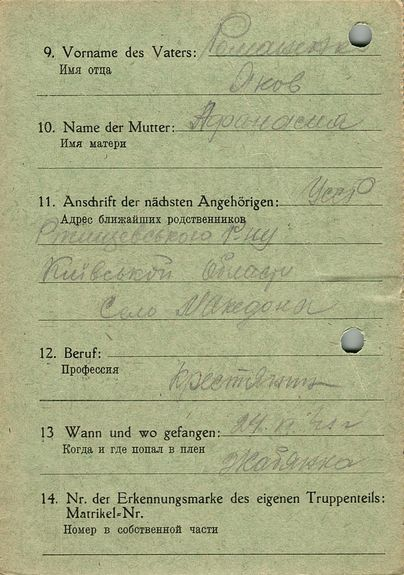 9. Vorname des Vaters: Романенко
Имя отца
Яков
10. Name der Mutter: Афанасия
Имя матери
11. Anschrift der nächsten Angehörigen: УССР
Адрес ближайших родственников
Ржищевського р-ну
Київської области
Село Македони
12. Beruf:
Профессия
крестянин
13 Wann und wo gefangen: 24.VI.41 г
Когда и где попал в плен
14. Nr. der Erkennungsmarke des eigenen Truppenteils:
Matrikel-Nr.
Номер в собственной части